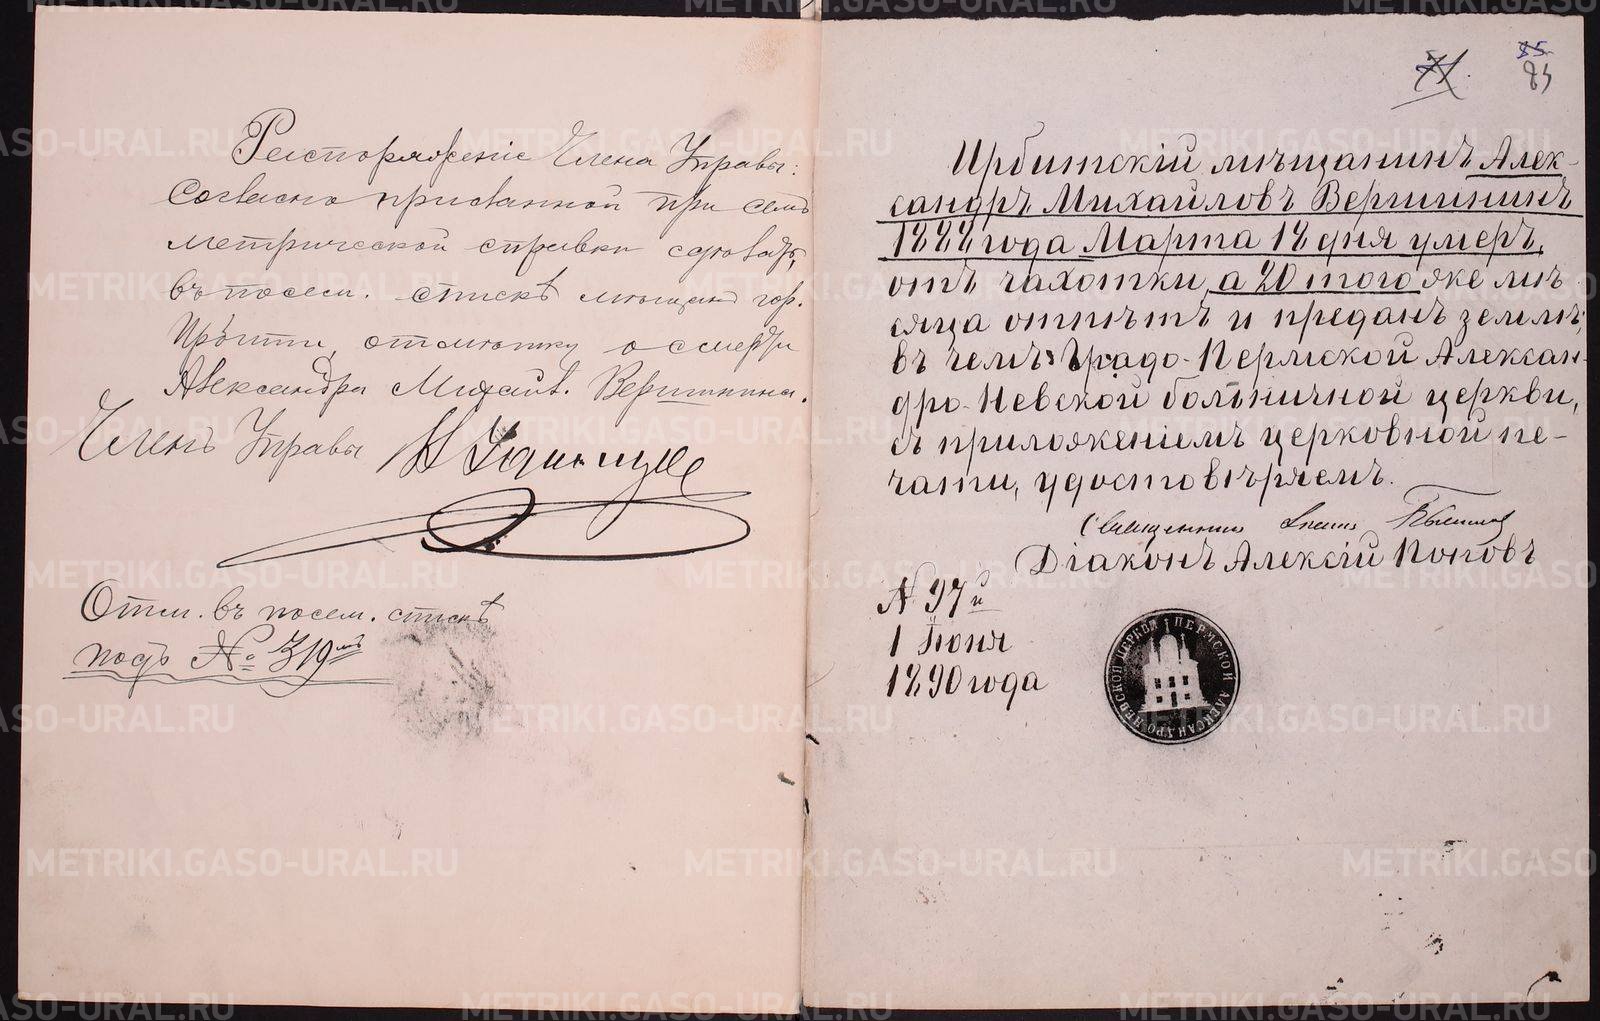 Распоряженіе Члена Управы:
Согласно присланной при семъ
метрической справки сдѣлать
въ посем. спискѣ мѣщанъ гор.
Ирбити отмѣтку о смерти
Александра Михайл. Вершинина.
Членъ Управы
Отм. въ посем. спискѣ
подъ № 319мъ
71.
85
83
Ирбитскій мѣщанинъ Алек-
сандръ Михайловъ Вершининъ
1888 года Марта 18 дня умеръ
отъ чахотки, а 20 того же мѣ-
сяца отпѣтъ и преданъ землѣ;
въ чемъ Градо-Пермской Алексан-
дро-Невской больничной церкви,
съ приложеніемъ церковной пе-
чати, удостовѣряемъ.
Священникъ
Діаконъ Алексій Поповъ
№ 97й
1 Іюня
1890 года
ПЕРМСКОЙ АЛЕКСАНДРО НЕВСКОЙ ЦЕРКВИ
METRIKI.GASO-URAL.RU